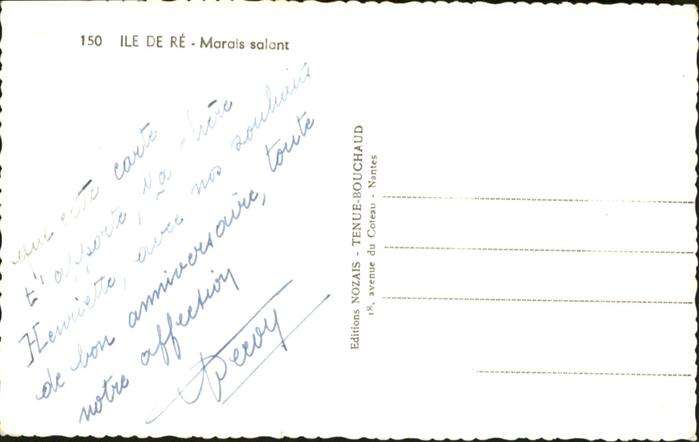 150 ILE DE RÉ - Marais salant
que cette carte
t'apporte, ma chère
Henriette, avec nos souhaits
de bon anniversaire, toute
notre affection
Editions NOZAIS - TENUE-BOUCHAUD
18, avenue du Coteau - Nantes